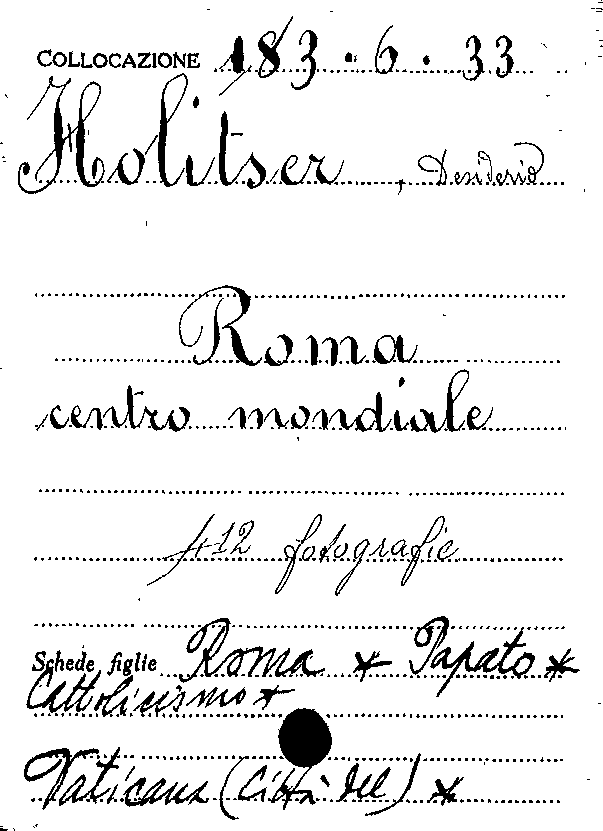 COLLOCAZIONE 183 . 6 . 33
Holitser, Desiderio
Roma
centro mondiale
412 fotografie
Schede figlie Roma * Papato *
Cattolicismo *
Vaticano (Città del) *